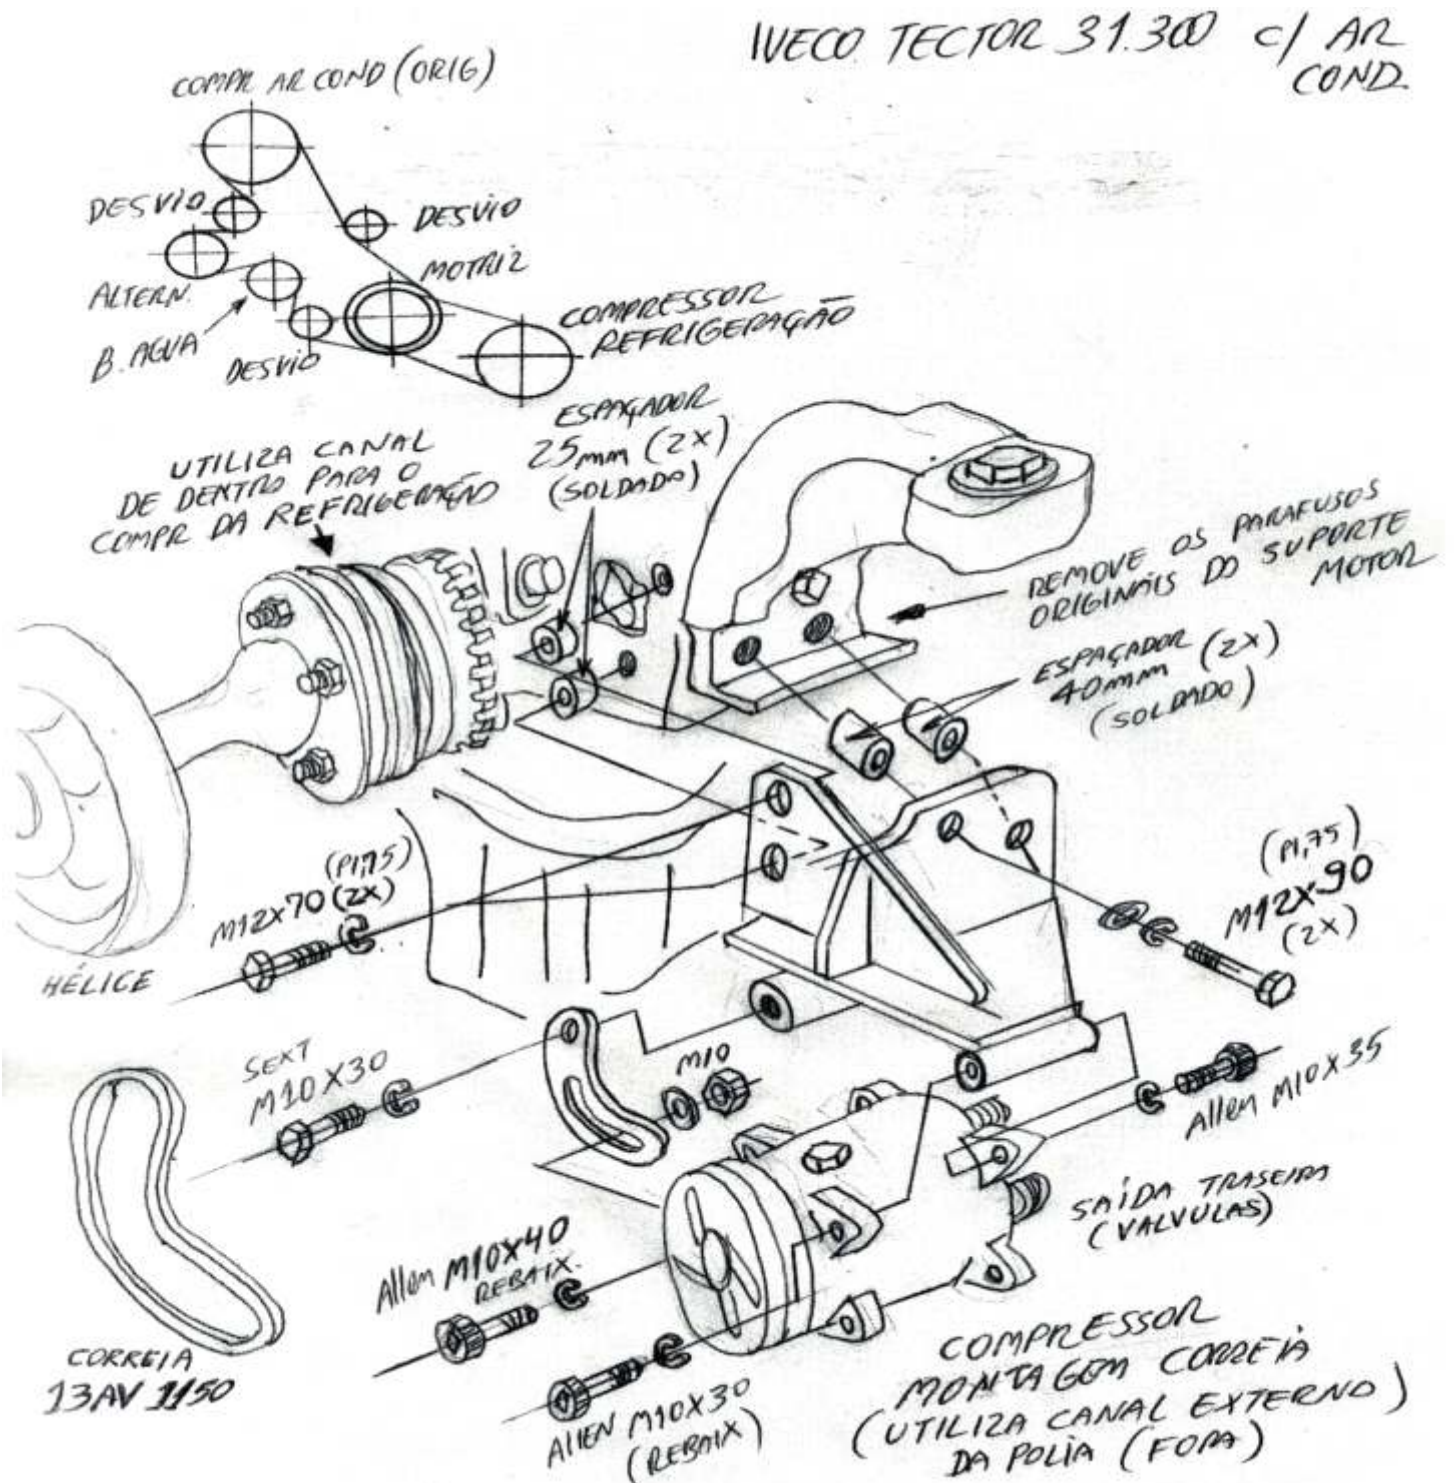 IVECO TECTOR 31.300 c/ AR
COND.
COMPR AR COND (ORIG)
DESVIO
DESVIO
MOTRIZ
ALTERN.
B. AGUA
DESVIO
COMPRESSOR
REFRIGERAÇÃO
ESPAÇADOR
25mm (2X)
(SOLDADO)
UTILIZA CANAL
DE DENTRO PARA O
COMPR DA REFRIGERAÇÃO
REMOVE OS PARAFUSOS
ORIGINAIS DO SUPORTE
MOTOR
ESPAÇADOR
40mm (2X)
(SOLDADO)
(P1,75)
M12X70 (2X)
(P1,75)
M12X90
(2X)
HÉLICE
SEXT
M10X30
M10
Allen M10X35
SAÍDA TRASEIRA
(VALVULAS)
Allen M10X40
REBAIX.
CORREIA
13AV 1150
AllEN M10X30
(REBAIX)
COMPRESSOR
MONTAGEM CORREIA
(UTILIZA CANAL EXTERNO)
DA POLIA (FORA)